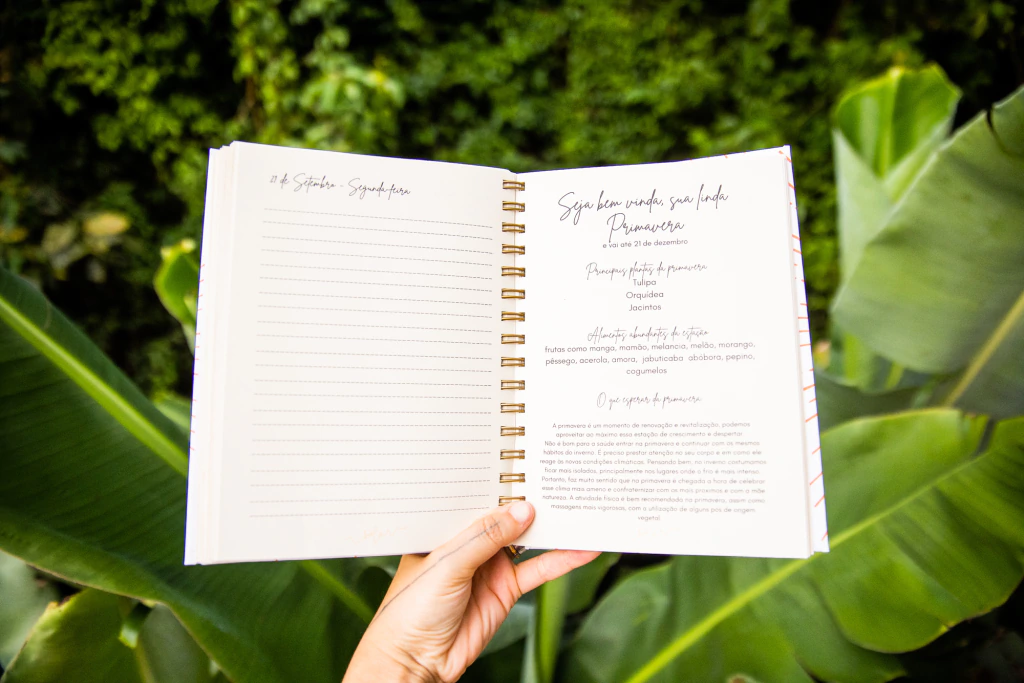 de Setembro - Segunda-feira
Seja bem vinda, sua linda
Primavera
e vai até 21 de dezembro
Principais plantas da primavera
Tulipa
Orquídea
Jacintos
Alimentos abundantes da estação
frutas como manga, mamão, melancia, melão, morango,
pêssego, acerola, amora, jabuticaba abóbora, pepino,
cogumelos
O que esperar da primavera
A primavera é um momento de renovação e revitalização, podemos
aproveitar ao máximo essa estação de crescimento e despertar.
Não é bom para a saúde entrar na primavera e continuar com os mesmos
hábitos do inverno. É preciso prestar atenção no seu corpo e em como ele
reage às novas condições climáticas. Pensando bem, no inverno costumamos
ficar mais isolados, principalmente nos lugares onde o frio é mais intenso.
Portanto, faz muito sentido que na primavera é chegada a hora de celebrar
esse clima mais ameno e confraternizar com os mais próximos e com a mãe
natureza. A atividade física é bem recomendada na primavera, assim como
massagens mais vigorosas, com a utilização de alguns pós de origem
vegetal